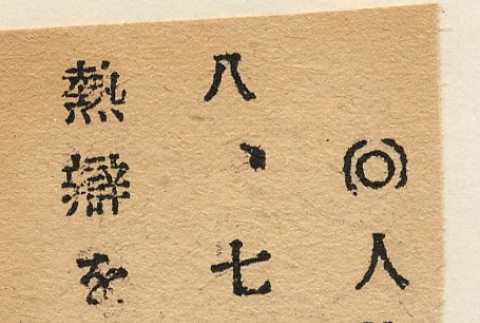 ◎人
八、七
熱辯を